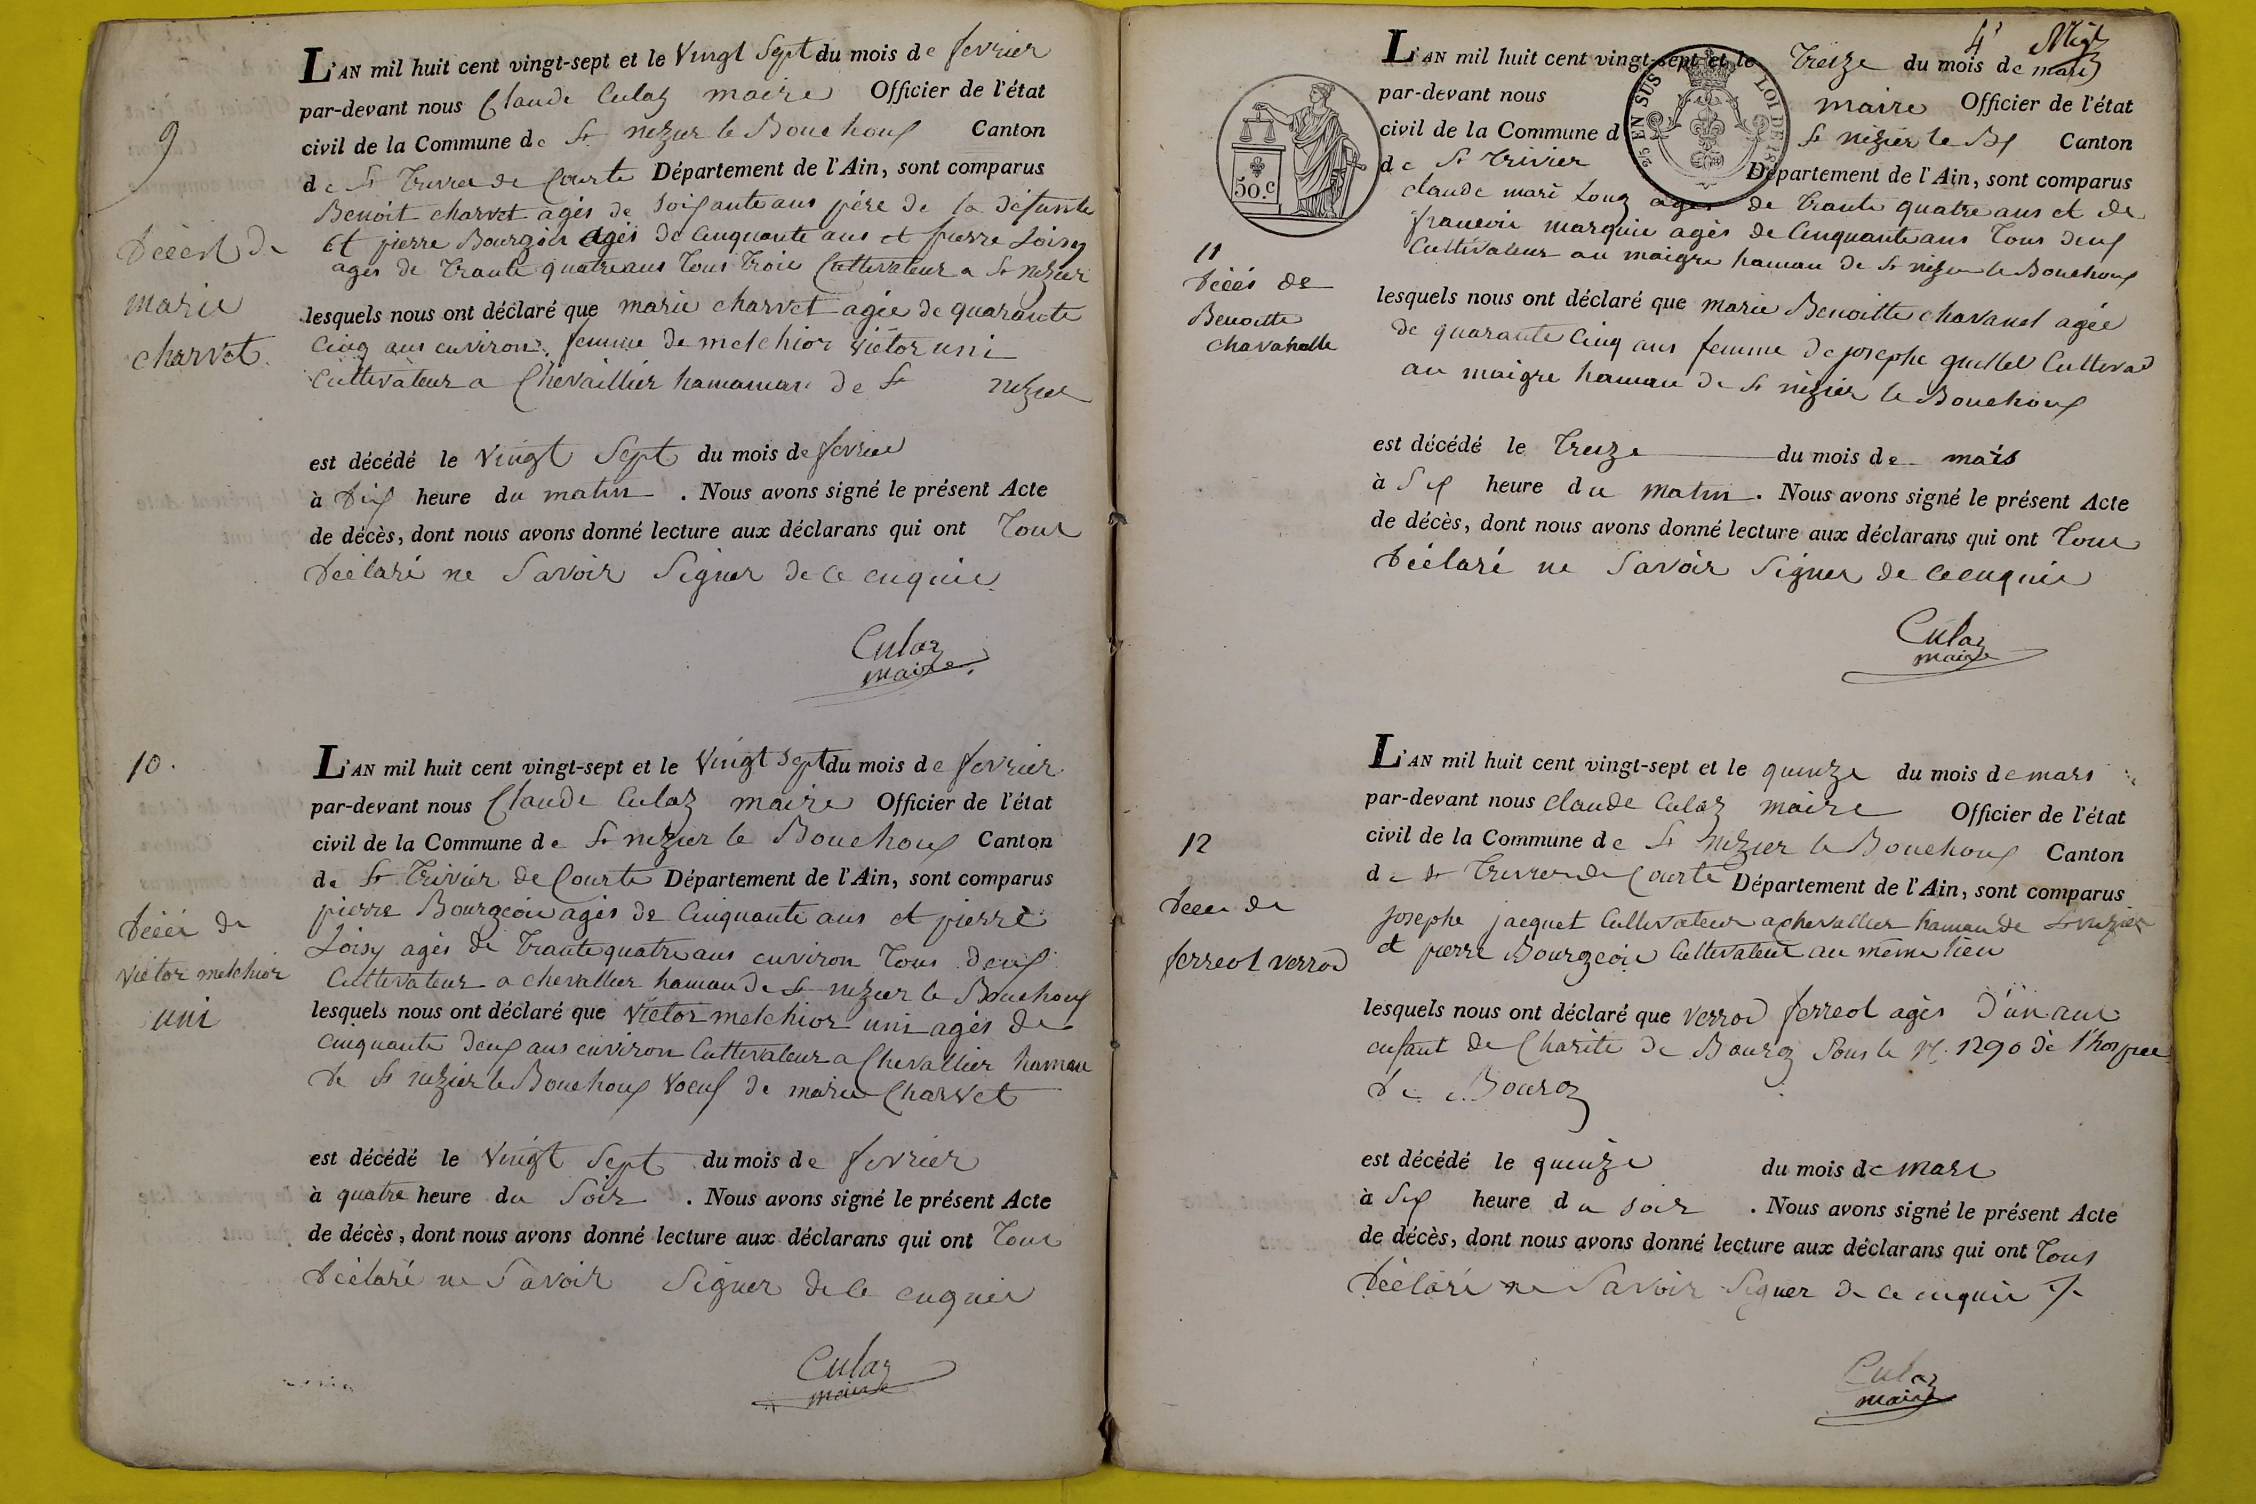 9
Décést de
marie
charvet.
L'AN mil huit cent vingt-sept et le vingt sept du mois de fevrier
par-devant nous Claude Culaz maire Officier de l'état
civil de la Commune de St nezier le Bouchoux Canton
de St Trivier de Courte Département de l'Ain, sont comparus
Benoit charvet agés de soixante ans pére de la défunte
Et pierre Bourgois agés de cinquante ans et pierre Loisy
agés de trante quatre ans tous trois Cultivateur a St nezier
lesquels nous ont déclaré que marie charvet agée de quarante
cinq ans environ femme de melchior victor uni
Cultivateur a Chevaillier hamamau de St nezier
est décédé le vingt sept du mois de fevrier
à dix heure du matin . Nous avons signé le présent Acte
de décès, dont nous avons donné lecture aux déclarans qui ont tous
déclaré ne savoir signer de ce enquis
Culaz
maire
10.
Décés de
victor melchior
uni
L'AN mil huit cent vingt-sept et le vingt sept du mois de fevrier
par-devant nous Claude Culaz maire Officier de l'état
civil de la Commune de St nezier le Bouchoux Canton
de St Trivier de Courte Département de l'Ain, sont comparus
pierre Bourgeois agés de cinquante ans et pierre
Loisy agés de trante quatre ans environ tous deux
Cultivateur a chevallier hamau de St nezier le Bouchoux
lesquels nous ont déclaré que victor melchior uni agés de
cinquante deux ans environ Cultivateur a Chevallier hamau
de St nezier le Bouchoux voeuf de marie Charvet
est décédé le vingt sept du mois de fevrier
à quatre heure du soir . Nous avons signé le présent Acte
de décès, dont nous avons donné lecture aux déclarans qui ont tous
déclaré ne savoir signer de ce enquis
Culaz
maire
4e
50.C
25 EN SUS LOI DE
11
Décés de
Benoitte
chavanelle
L'AN mil huit cent vingt-sept et le treize du mois de mars
par-devant nous maire Officier de l'état
civil de la Commune d St nezier le Bx Canton
de St Trivier Département de l'Ain, sont comparus
claude marie Louz agés de trante quatre ans et de
francois marquis agés de cinquante ans tous deux
Cultivateur au maigre hamau de St nezier le Bouchoux
lesquels nous ont déclaré que marie Benoitte chavanel agée
de quarante cinq ans femme de josephe guillet Cultivad
au maigre hamau de St nezier le Bouchoux
est décédé le treize du mois de mars
à six heure du matin . Nous avons signé le présent Acte
de décès, dont nous avons donné lecture aux déclarans qui ont tous
déclaré ne savoir signer de ce enquis
Culaz
maire
12
Décés de
ferreol verrod
L'AN mil huit cent vingt-sept et le quinze du mois de mars
par-devant nous claude Culaz maire Officier de l'état
civil de la Commune de St Nezier le Bouchoux Canton
de St Trivier de Courte Département de l'Ain, sont comparus
josephe jacquet Cultivateur a chevallier hamau de St nezier
et pierre Bourgeois Cultivateur au même lieu
lesquels nous ont déclaré que verrod ferreol agés d'un ans
enfant de Charité de Bourg sous le n. 1290 de l'hospice
de Bourg
est décédé le quinze du mois de mars
à six heure du soir . Nous avons signé le présent Acte
de décès, dont nous avons donné lecture aux déclarans qui ont tous
déclaré ne savoir signer de ce enquis
Culaz
maire